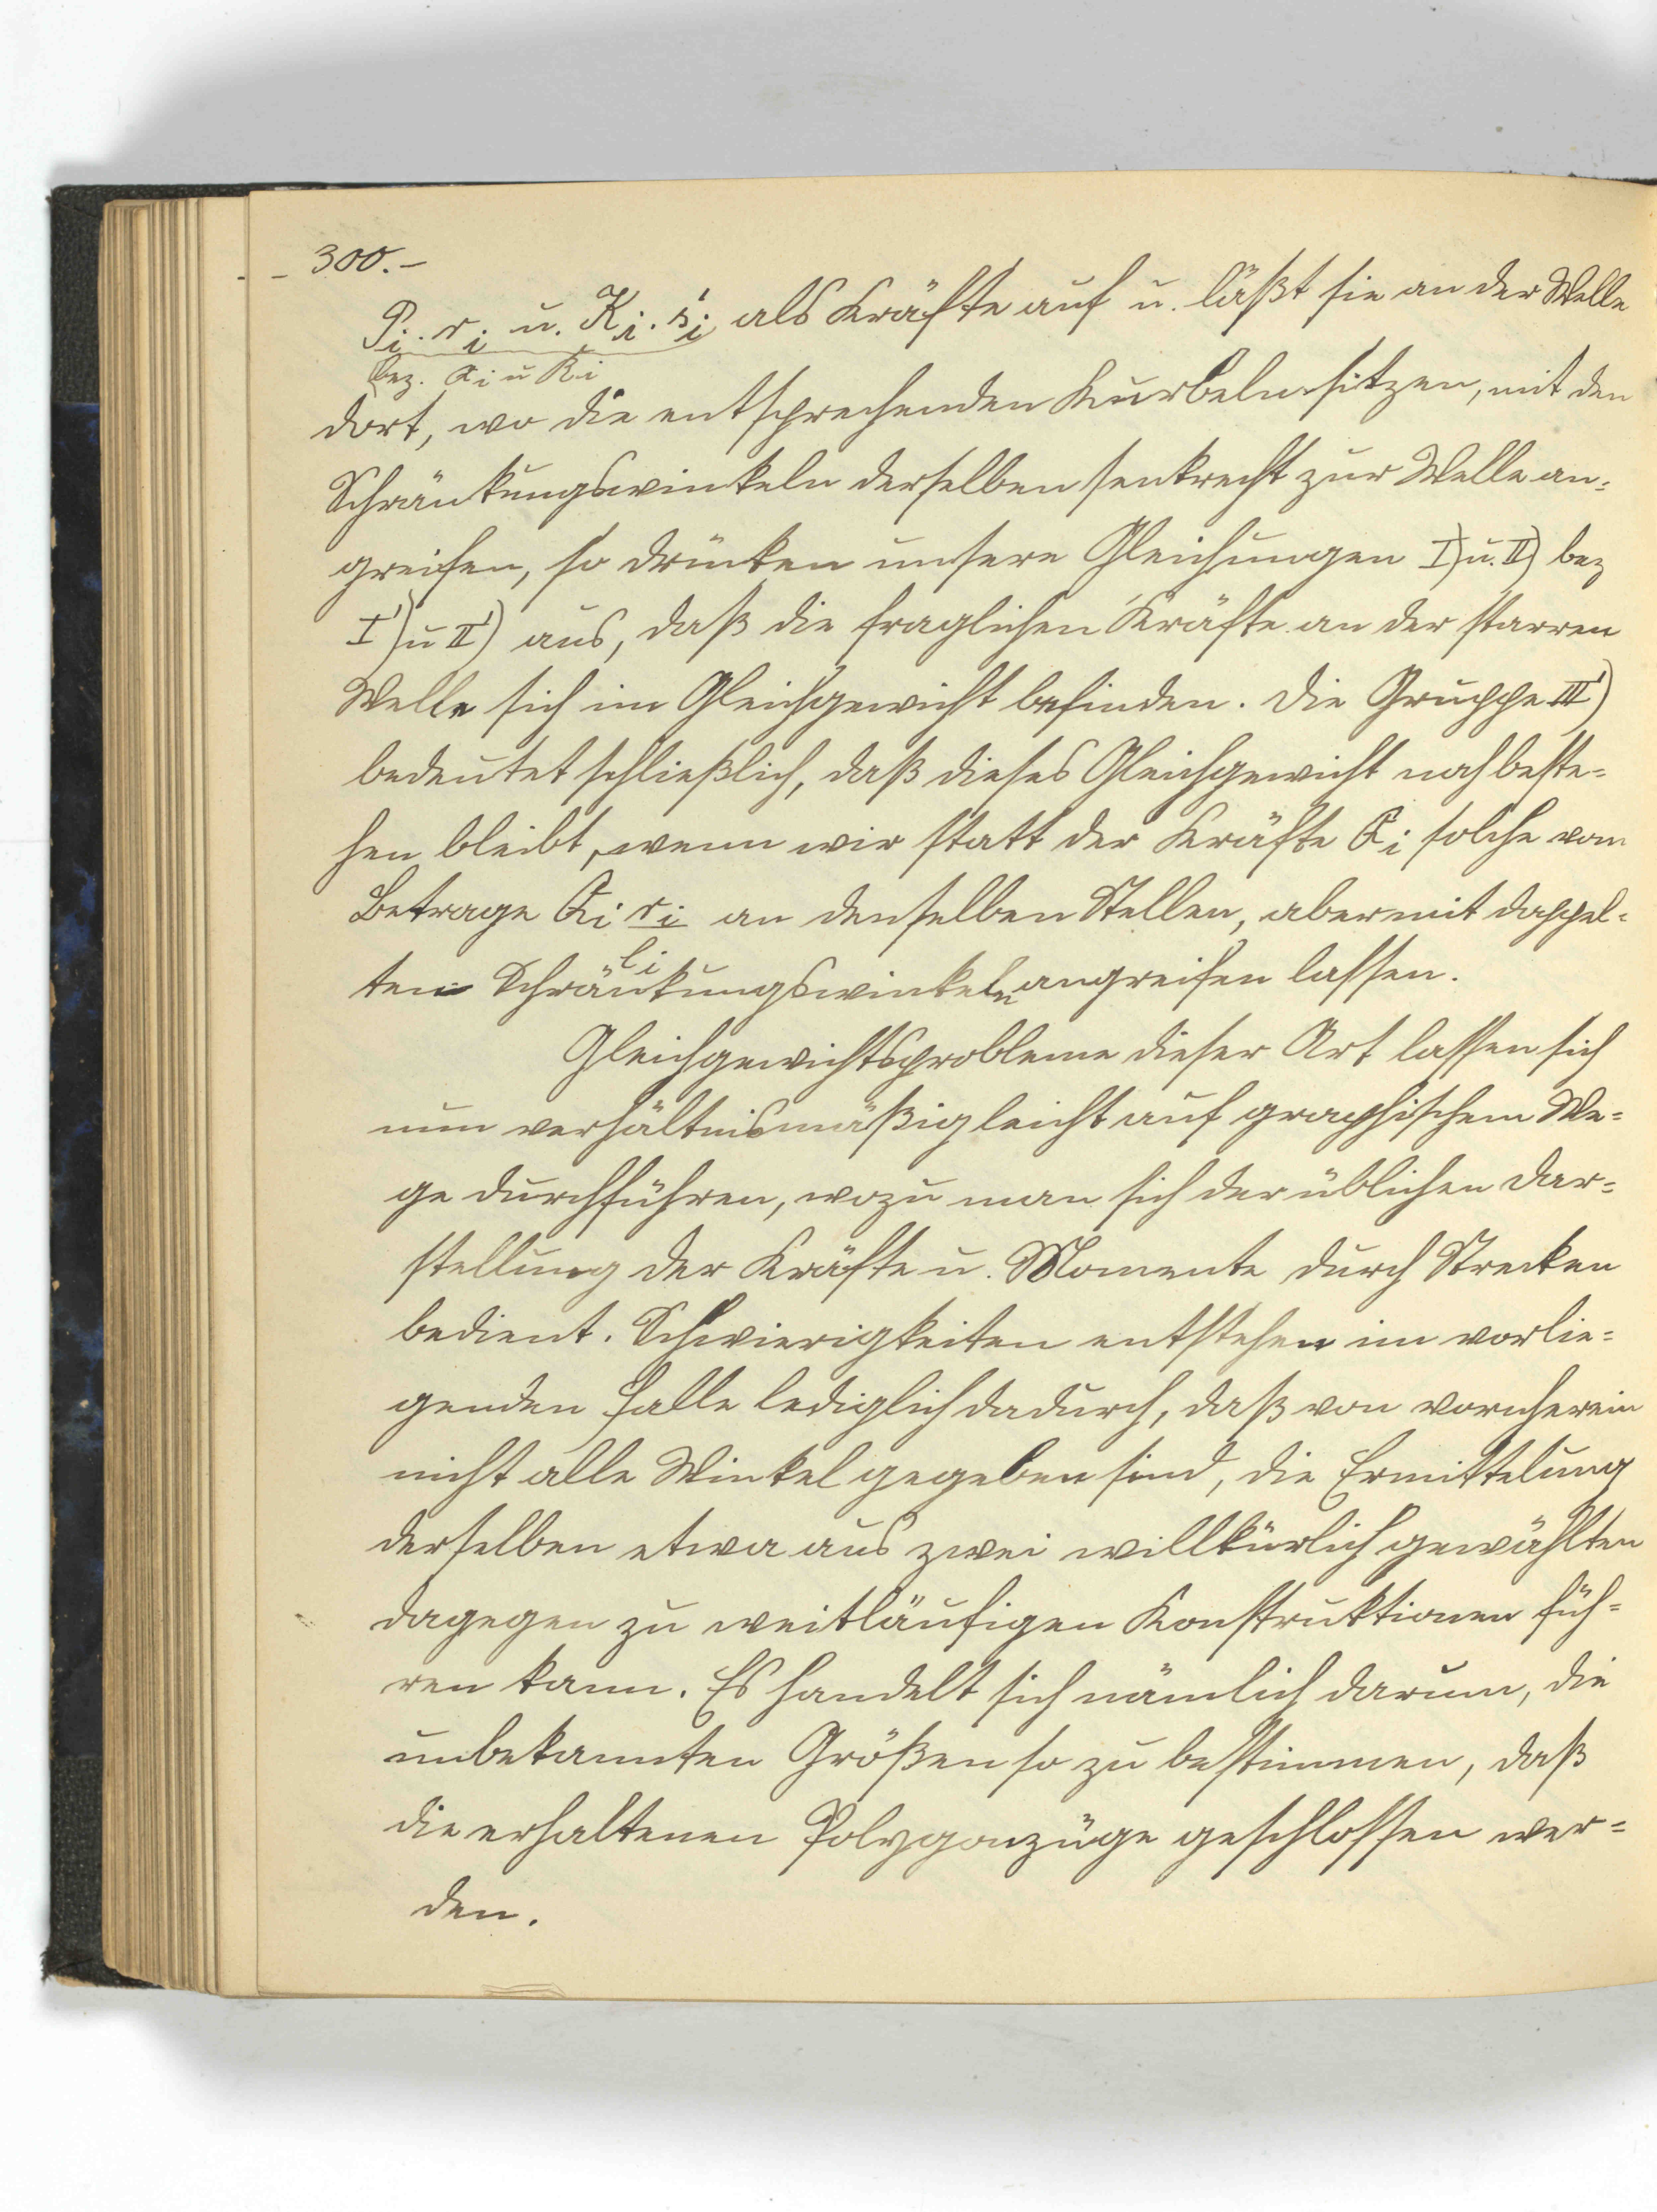 - 300. -
P_i · r_i u. K_i · s'_i als Kräfte auf u. läßt sie an der Welle
bez. Q_i u R_i
dort, wo die entsprechenden Kurbeln sitzen, mit den
Schränkungswinkeln derselben senkrecht zur Welle an=
greifen, so drücken unsere Gleichungen I) u. II) bez
I') u II') aus, daß die fraglichen Kräfte an der starren
Welle sich im Gleichgewicht befinden. Die Gruppe III')
bedeutet schließlich, daß dieses Gleichgewicht noch beste=
hen bleibt, wenn wir statt der Kräfte Q_i solche vom
Betrage Q_i r_i/l_i an denselben Stellen, aber mit doppel=
ten Schränkungswinkeln angreifen lassen.
Gleichgewichtsprobleme dieser Art lassen sich
nun verhältnismäßig leicht auf graphischem We=
ge durchführen, wozu man sich der üblichen Dar=
stellung der Kräfte u. Momente durch Strecken
bedient. Schwierigkeiten entstehen im vorlie=
genden Falle lediglich dadurch, daß von vornherein
nicht alle Winkel gegeben sind, die Ermittelung
derselben etwa aus zwei willkürlich gewählten
dagegen zu weitläufigen Konstruktionen füh=
ren kann. Es handelt sich nämlich darum, die
unbekannten Größen so zu bestimmen, daß
die erhaltenen Polygonzüge geschlossen wer=
den.